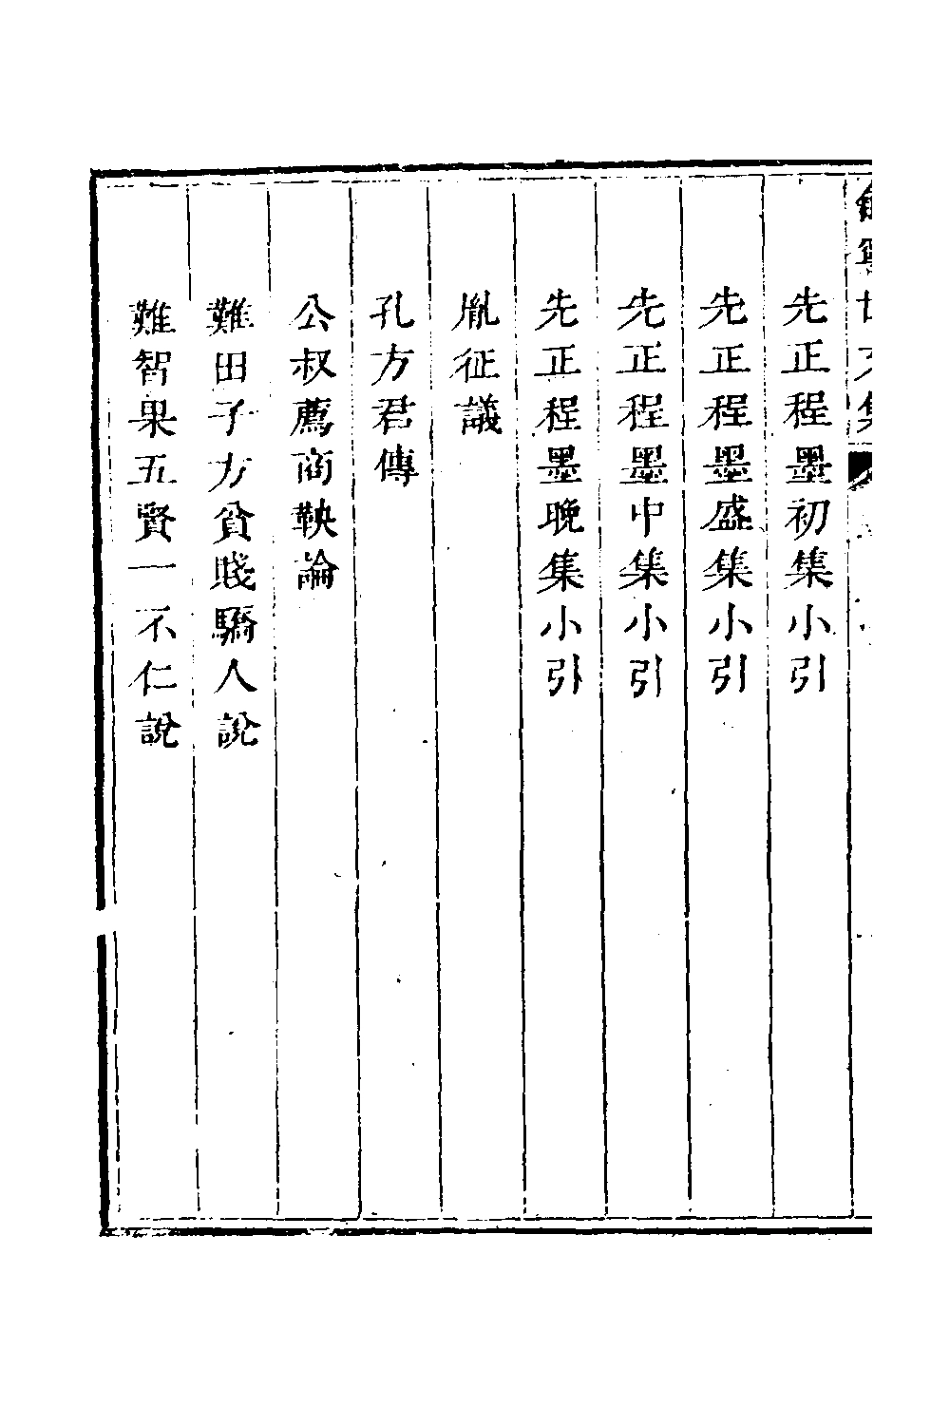 先正程墨初集小引
先正程墨盛集小引
先正程墨中集小引
先正程墨晚集小引
胤征議
孔方君傳
公叔薦商鞅論
難田子方貧賤驕人說
難智果五賢一不仁說